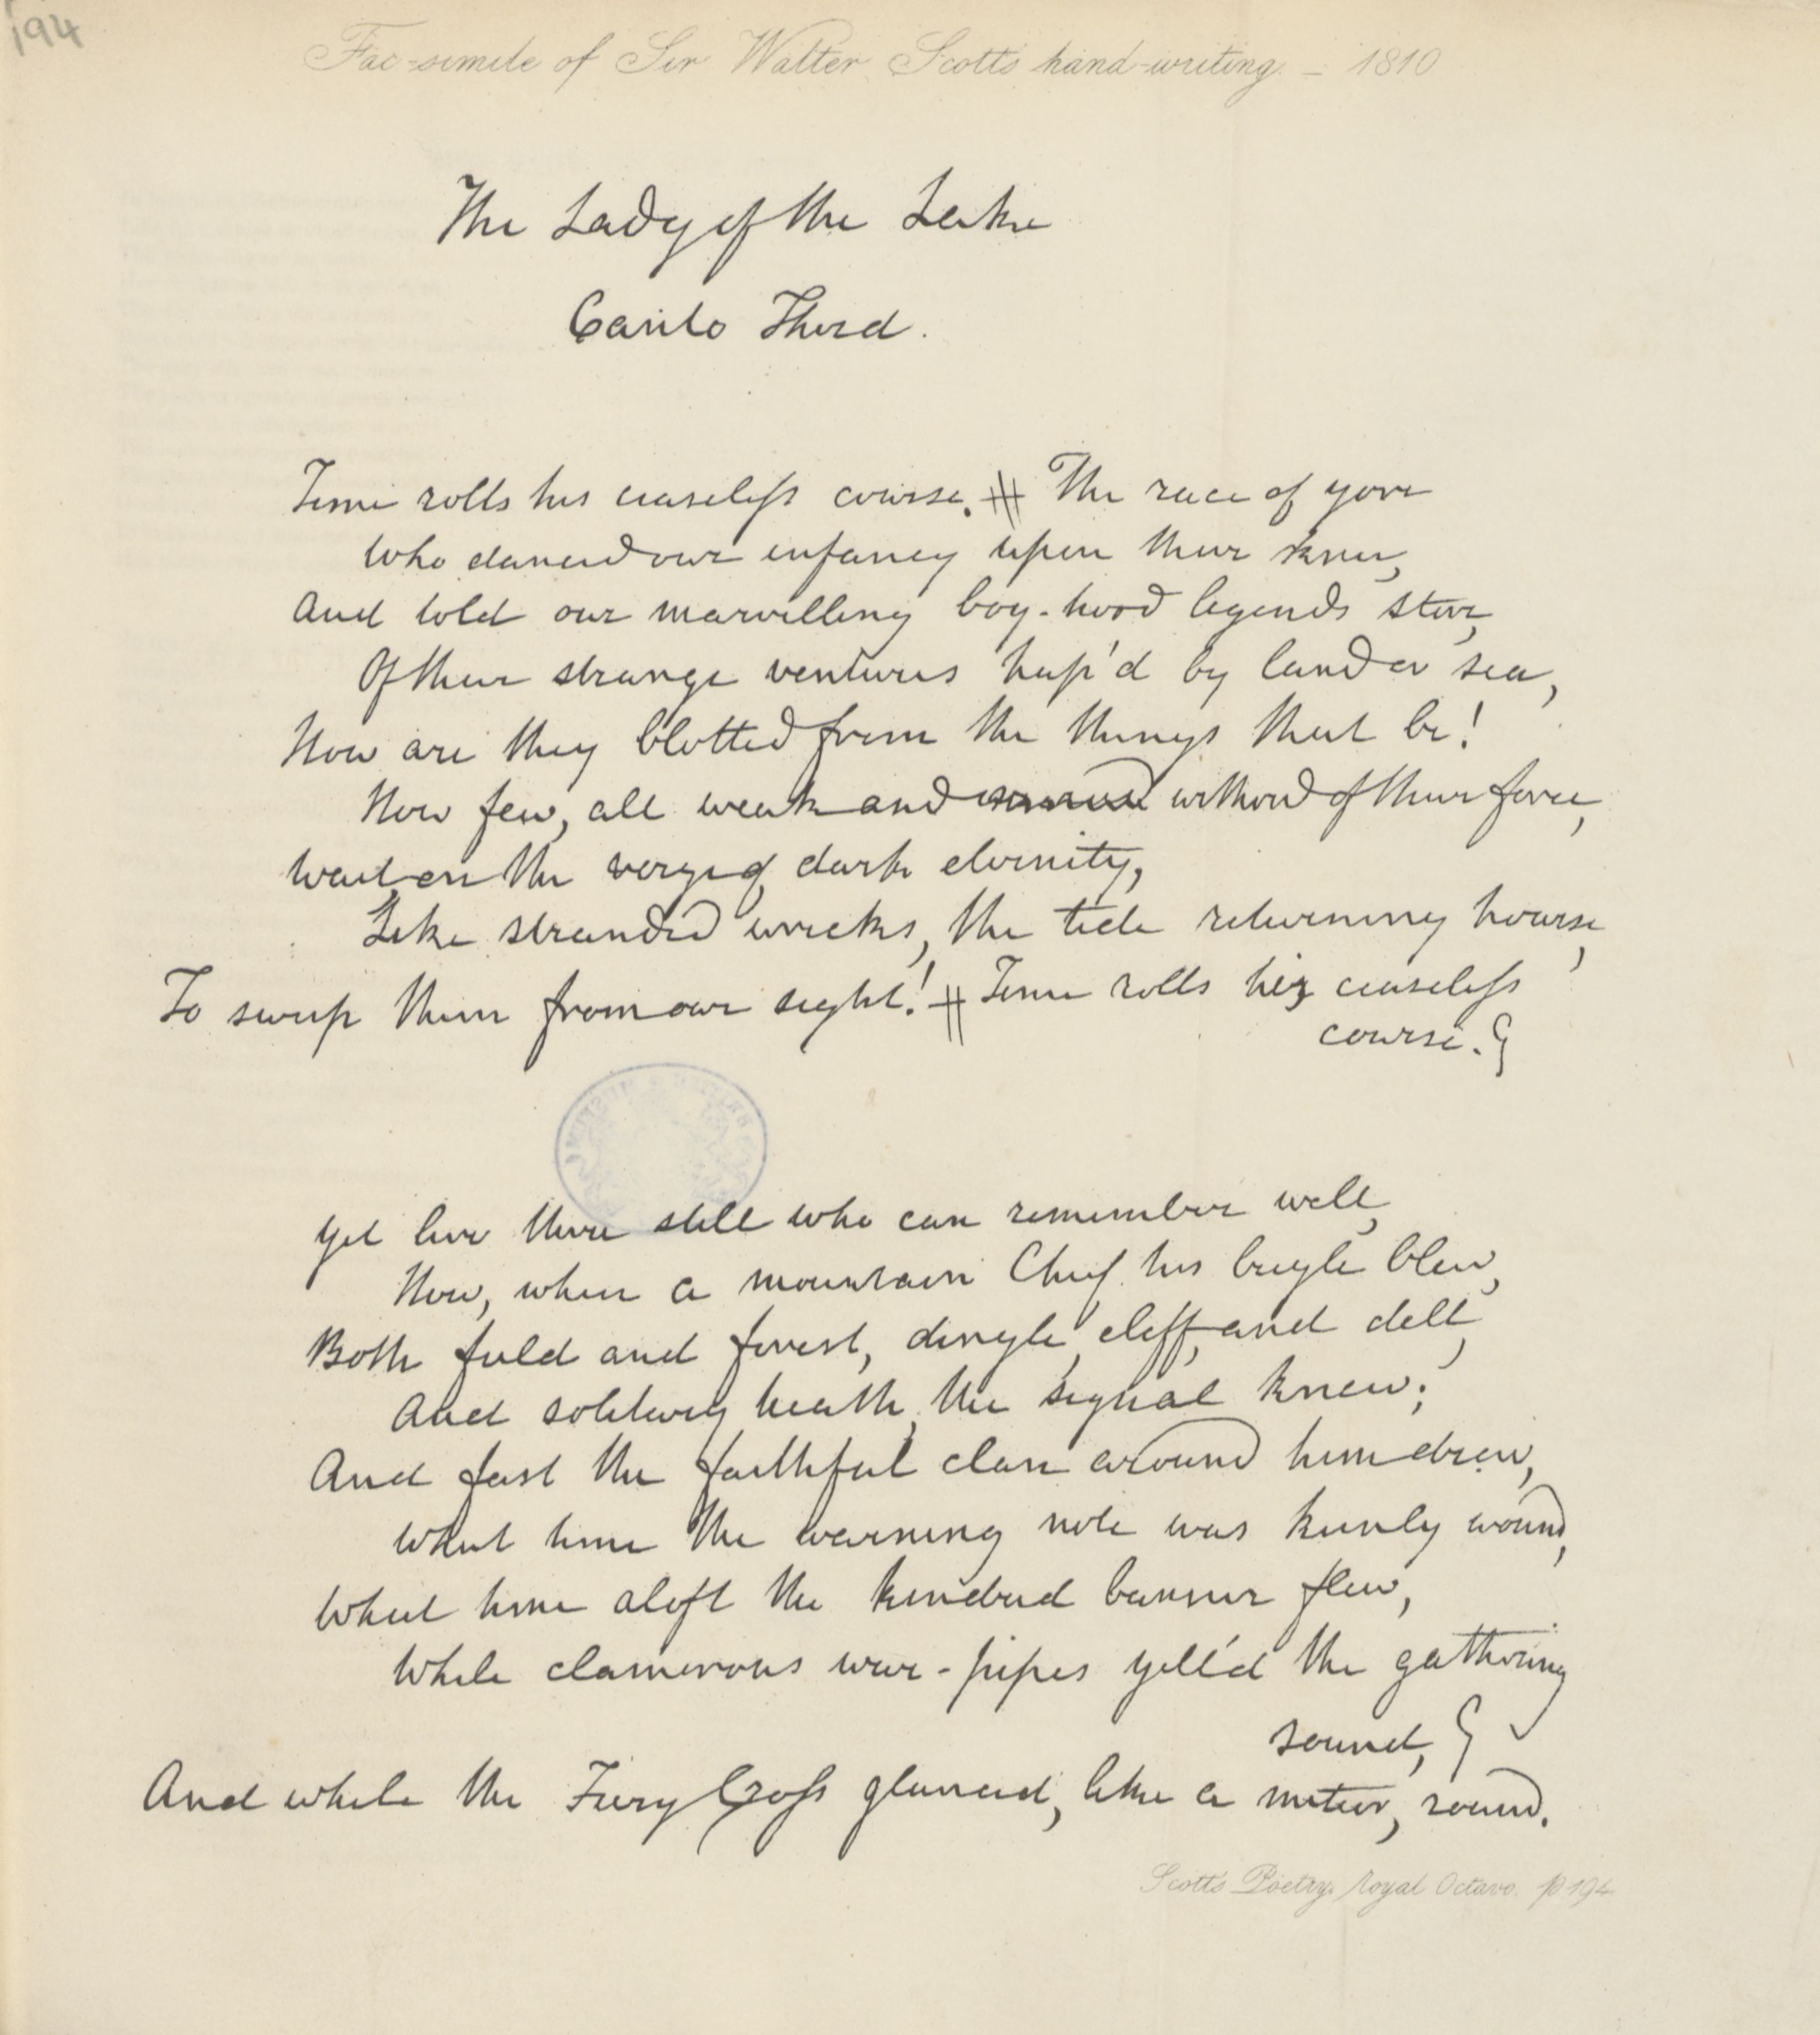 194
Fac-simile of Sir Walter Scott's hand-writing. – 1810
The Lady of the Lake
Canto Third.
Time rolls his ceaseless course. # The race of yore
Who danced our infancy upon their knee,
And told our marvelling boy-hood legends store,
Of their strange ventures hap'd by land or sea,
How are they blotted from the things that be!
How few, all weak and witherd of their force,
Wait, on the verge of dark eternity,
Like stranded wrecks, the tide returning hoarse,
To sweep them from our sight! # Time rolls his ceaseless
course.
Yet live there still who can remember well,
How, when a mountain Chief his bugle blew,
Both field and forest, dingle, cliff, and dell,
And solitary heath, the signal knew;
And fast the faithful clan around him drew,
What time the warning note was keenly wound,
What time aloft the kindred banner flew,
While clamorous war-pipes yell'd the gathering
sound,
And while the Fiery Cross glanced, like a meteor, round.
Scott's Poetry, Royal Octavo. p 194